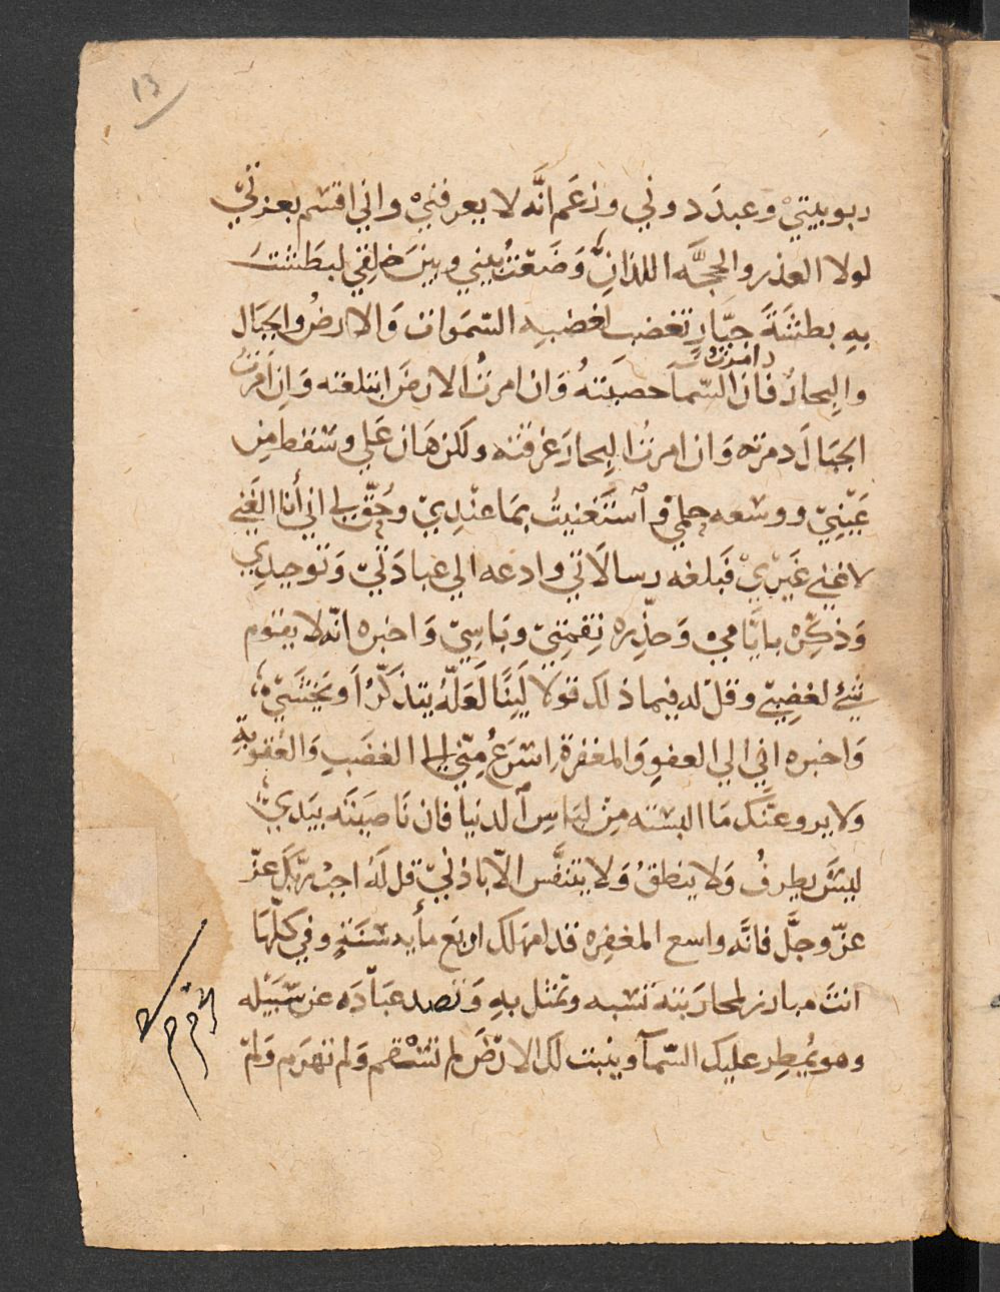 13
ربوبيتيْ وعبدَ دوني وزعَم انَّه لا يعرفنيْ واني اقسم بعزتيْ
لولا العذر والحجَّه اللذانِ وَضَعْتُ بيني وبينَ خلقي لبَطَشتُ
بهِ بطشَةَ جبَّارٍ تغضب لغضبهِ السّمَوات وَالارضُ والجبَال
والبِحارُ فان امرْتُ السّماَ حصبَتهُ وَان امرتُ الارضَ ابتلعته وَاِن اَمَرْتُ
الجبَالَ دمرته وَان امرتُ البِحارَ غرقته ولكن هَان عَلي وسَقط مِن
عَيْنِيْ ووسعه حلمي واستَغنيتُ بمَا عنْدِيْ وحُقّ لي اني أنا الغَني
لا غني غَيْريْ فَبلغه رسالَاتي وادعه الي عبادَتيْ وَتوحيدِي
وَذكِّره بايَّامي وَحذِّره نِقمَتِيْ وبَاسِيْ وَاخبره انّه لا يقوم
شيْء لغضِبيْ وقلْ له فيما ذلك قولا لَيِّنًا لَعَلّهُ يتذكَّرُ اَو يَخشَيْ
وَاخبره اني الي العفوِ وَالمغفرة اسْرَعُ مِنّي الي الغضَبِ وَالعُقوبَةِ
ولا يروعنَّك مَا البسته مِنْ لِبَاسِ الدنيا فان نَاصيَته بيَديْ
ليسَ يطرفُ وَلا ينطقُ وَلا يتنفَّس الّا باذنيْ قل لَهُ اجبْ ربَّكَ عزّ
عزّ وجلَّ فانّه واسع المغفِره قد امهَلك اربَع مأيه سَنَةٍ وفي كلّهَا
انتَ مبارز لمحارَبَته تسُبه وتمثل بهِ وَتصد عبَادَه عن سَبيْله
وهو يُمطِر عليك السّمآ وينبت لك الارْضَ لم تسْقم وَلم تهرَم وَلمْ